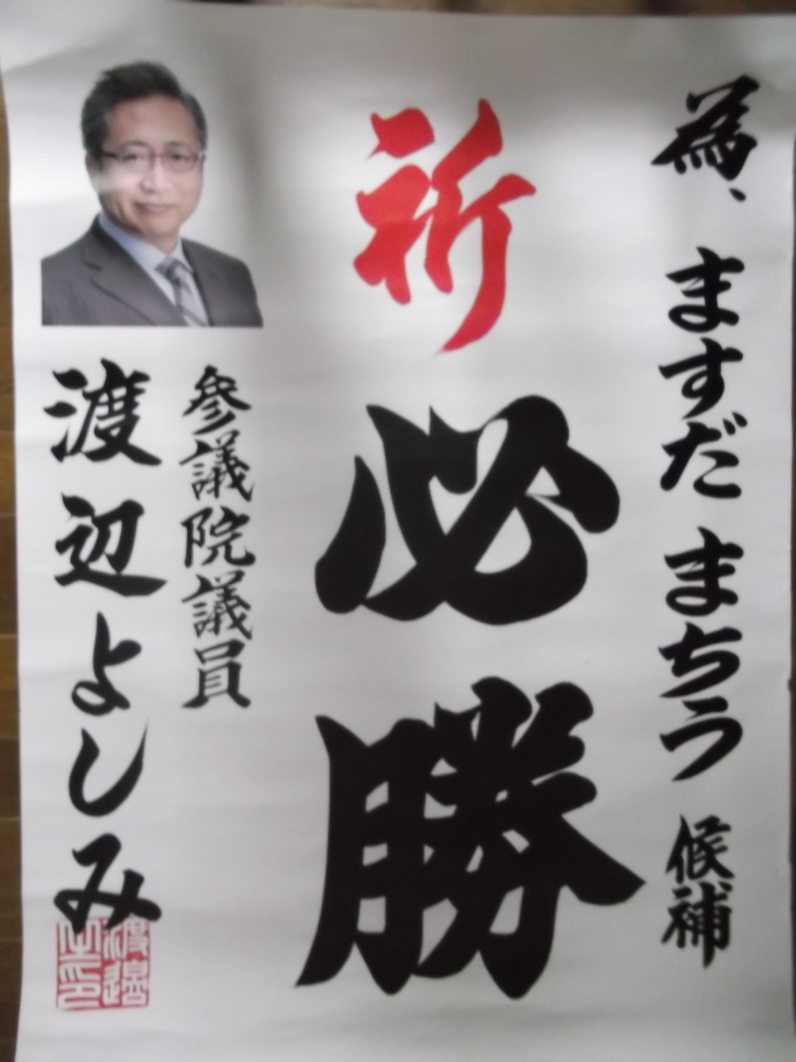 為、ますだ まちう 候補
祈
必勝
参議院議員
渡辺よしみ